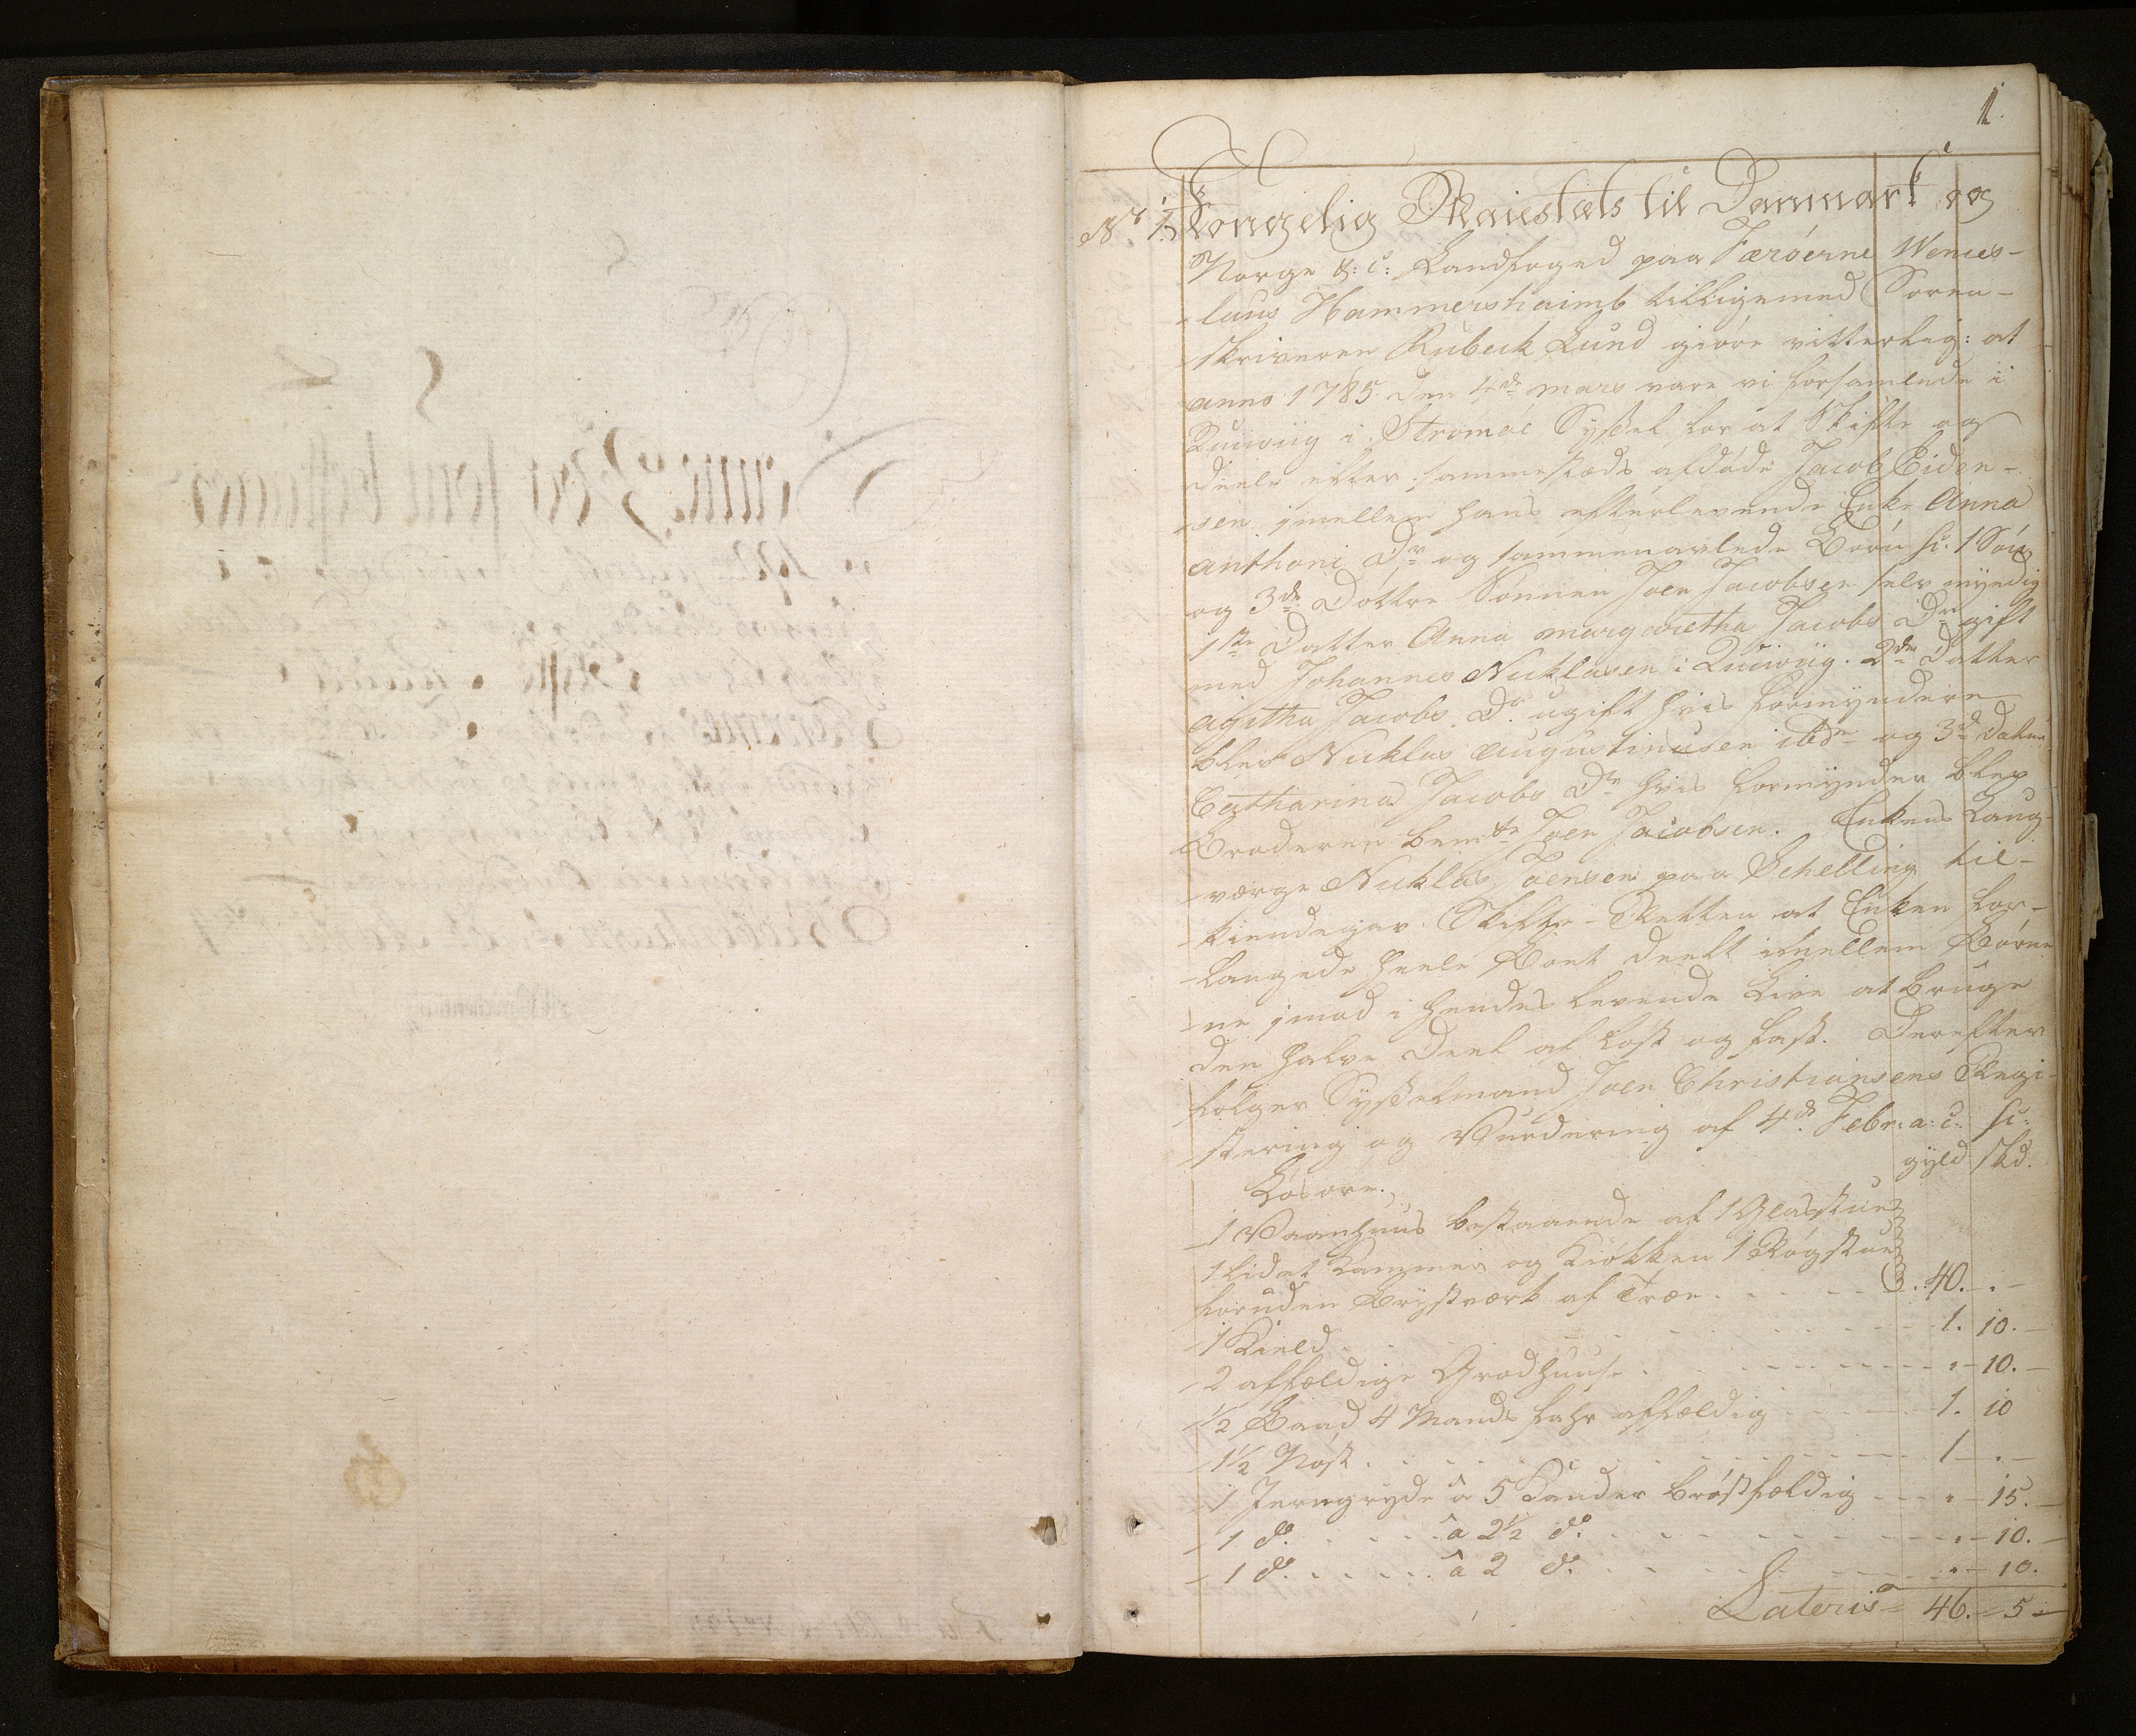 1.
No 1. Kongelig Maiestæts til Danmark og
Norge &: c: Landfoged paa Færöerne Wences-
laus Hammershaimb tilligemed Soren-
skriveren Rubeck Lund giöre vitterlig: at
anno 1785 den 4de mars vare vi forsamlede i
Quiwiig i Strömöe Syssel for at Skifte og
deele efter sammesteds afdöde Jacob Eiden-
sen jmellem hans efterlevende Enke Anna
Anthoni Dr og sammenavlede Börn sc: 1 Sön
og 3de Döttre Sönnen Joen Jacobsen selv myndig
1ste Datter Anna margaretha Jacobs Dr gift
med Johannes Nicklasen i Quiwiig. 2den Datter
Agatha Jacobs Dr ugift hvis formyndere
blev Nicklas Augustinusen ibdm og 3de Datter
Catharina Jacobs Dr hvis formynder blev
Broderen bemte Joen Jacobsen. Enkens Laug-
værge Nicklas Joensen paa Schelling til-
kiendegav Skifte-Retten at Enken for-
langede heele Boet deelt imellem Börne-
ne jmod i hendes levende Live at bruge
den halve Deel af löst og fast. Derefter
fölger Sysselmand Joen Christiansens Regi-
stering og Vurdering af 4de Febr: a: c: sc:
gyld skd.
Lösöre.
1 Vaanhuus bestaaende af 1 Glasstue
1 lidet Kammer og Kiökken 1 Rögstue
foruden Brystværk af Træe . . . 40. . -
1 Kield . . . 1. 10. -
2 affældige Grodhuuse . . . " - 10. -
1/2 Baad 4 Mands fahr affældig 1. 10
1 1/2 Nöst . . . 1 - . -
1 Jerngryde â 5 Kander bröstfældig " - 15. -
1 do . . . â 2 1/2 do . . . " - 10. -
1 do . . . â 2 do . . . " - 10.
Lateris = 46. = 5 =